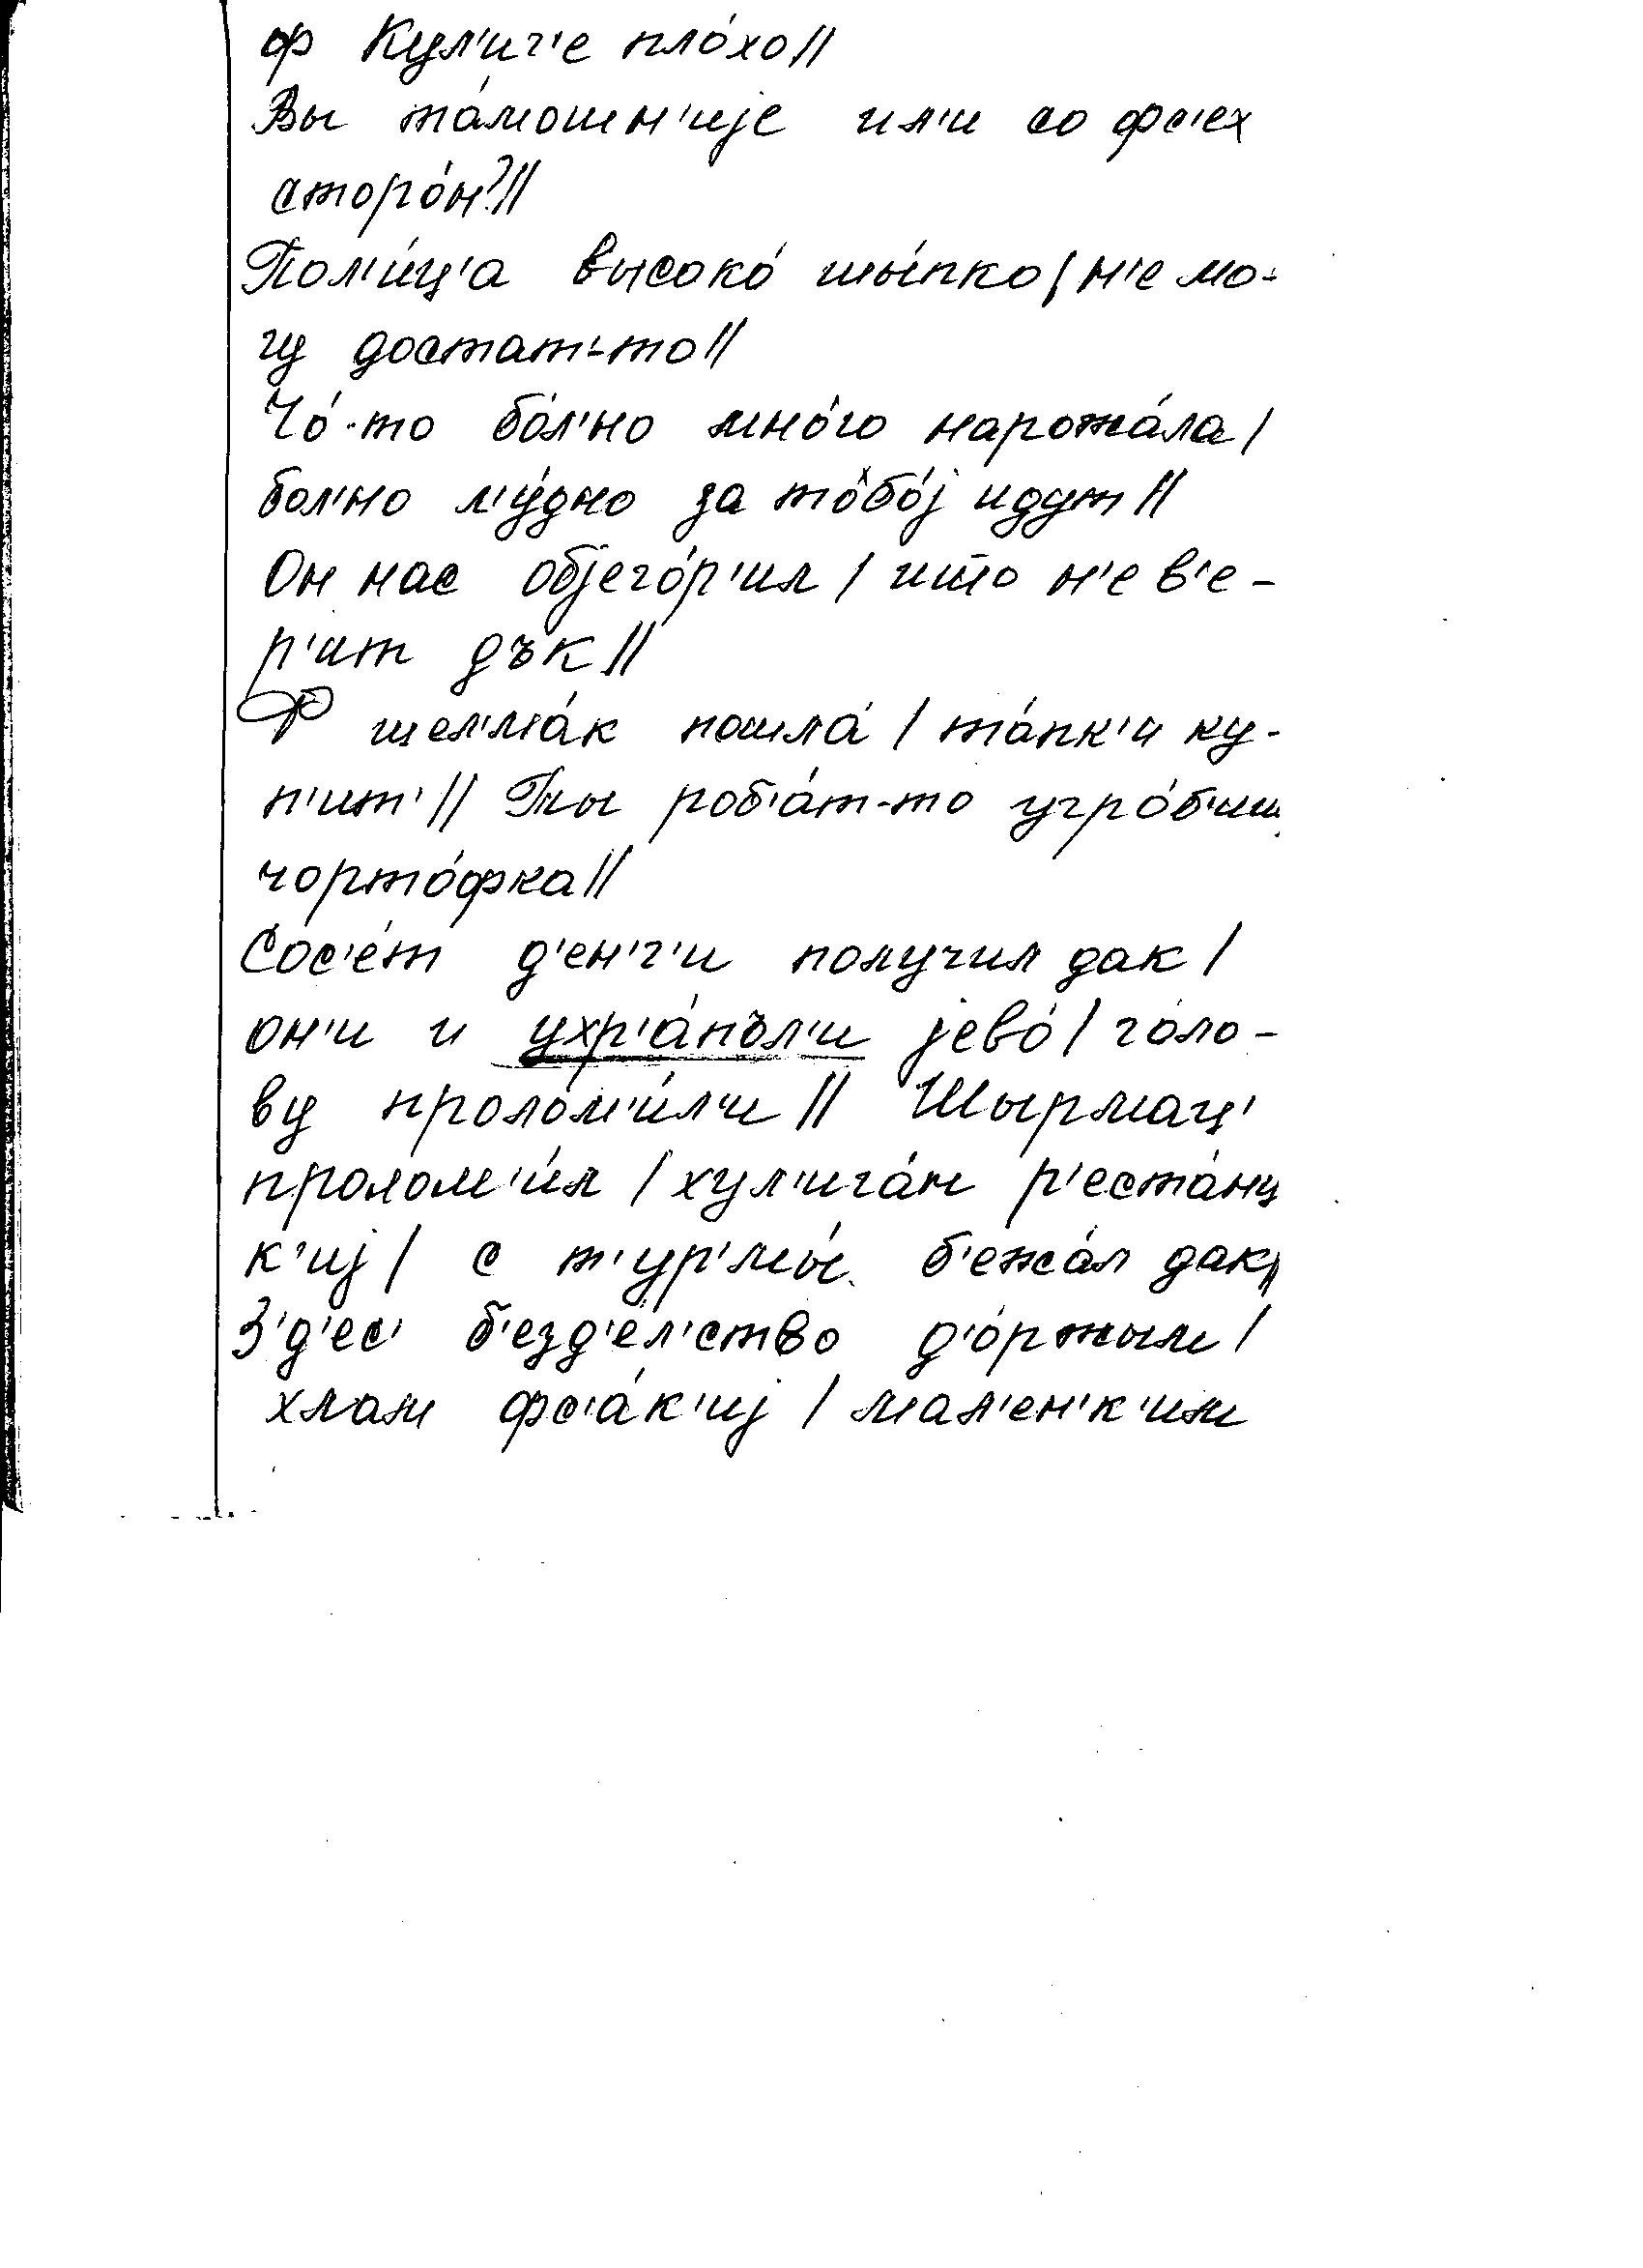 ф Кул'иг'е пло́хо//
Вы та́мошн'ијe ил'и со фс'ех
сторо́н?//
Пол'и́ц'а высоко́ шы́пко/ н'е мо-
гу достат'-то//
Чо́-то бо́л'но мно́го нарожа́ла/
бол'но л'у́дно за тобо́ј идут//
Он нас објего́р'ил / што н'е в'е-
р'ит дък//
Ф шел'ма́к пошла́ / та́пк'и ку-
п'ит'// Ты роб'а́т-то угро́б'иш
чорто́фка//
Сос'е́т д'ен'г'и получил дак /
он'и и ухр'а́пъл'и јево́ / го́ло-
ву пролом'и́л'и // Шырмац'
пролом'и́л / хул'ига́н р'еста́нц
к'иј / с т'ур'мы́ б'ежа́л дак//
З'д'ес' б'езд'е́л'ство д'о́ржым /
хлам фс'а́к'иј / мал'ен'к'им